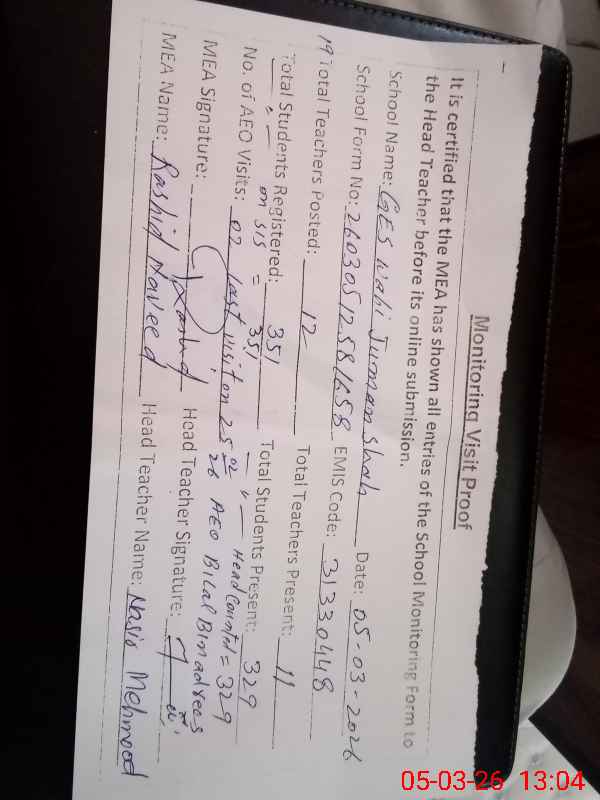 Monitoring Visit Proof
It is certified that the MEA has shown all entries of the School Monitoring Form to
the Head Teacher before its online submission.
School Name: GES Wahi Jumman Shah Date: 05-03-2026
School Form No: 26030512581658 EMIS Code: 31330448
19 Total Teachers Posted: 12 Total Teachers Present: 11
Total Students Registered: 351 Total Students Present: 329
— " — on SIS = 351 — " — Head Counted = 329
No. of AEO Visits: 02 last visit on 25 02 26 AEO Bilal Bin adrees
MEA Signature: Rashid Head Teacher Signature:
MEA Name: Rashid Naveed Head Teacher Name: Nasir Mehmood
05-03-26 13:04